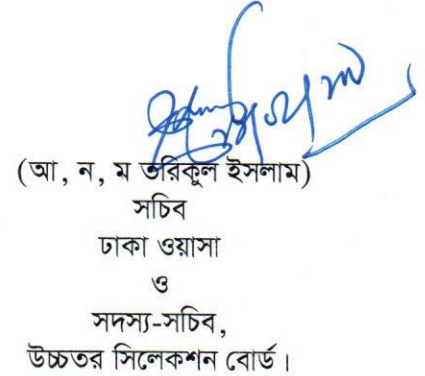 (আ, ন, ম তরিকুল ইসলাম)
সচিব
ঢাকা ওয়াসা
ও
সদস্য-সচিব,
উচ্চতর সিলেকশন বোর্ড।